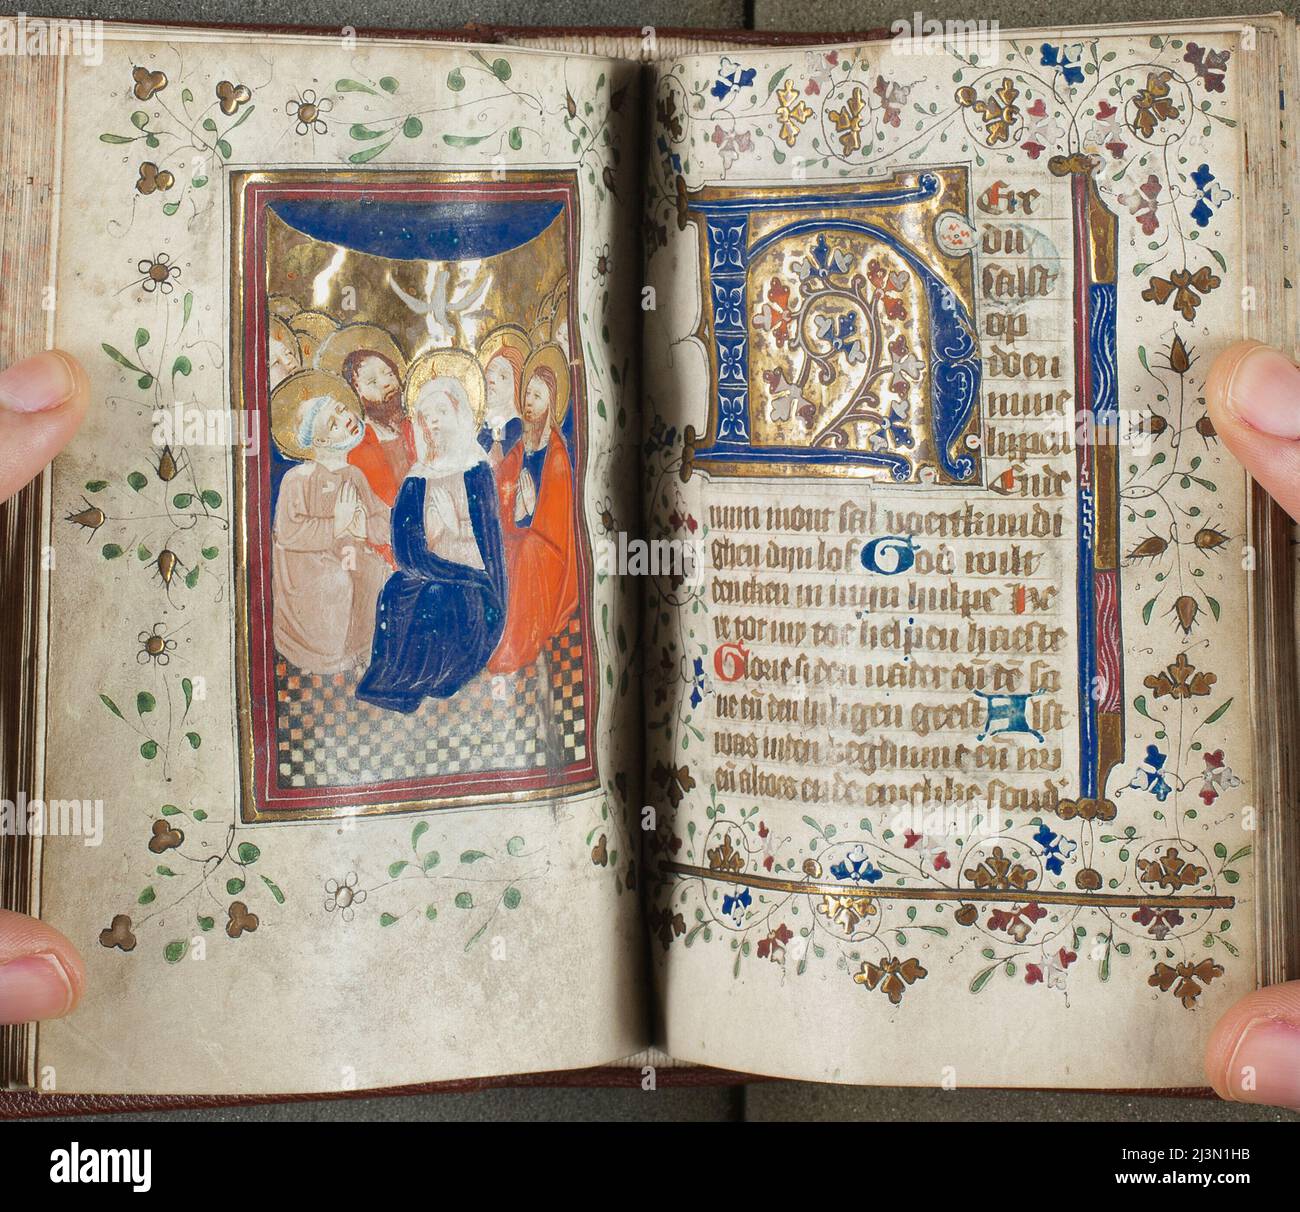 Here
du
salst
op
doen
mine
lippen
Ende
minn mont sal voertkundi
ghen dijn lof God wilt
dencken in mijn hulpe He
re tot my toe helpen haeste
Glorie si den vader eñ dē so
ne eñ den heilighen geest Alst
was inden beghinne eñ nu
eñ altoes ende ewelike sonder
alamy
Image ID: 2J3N1HB
www.alamy.com